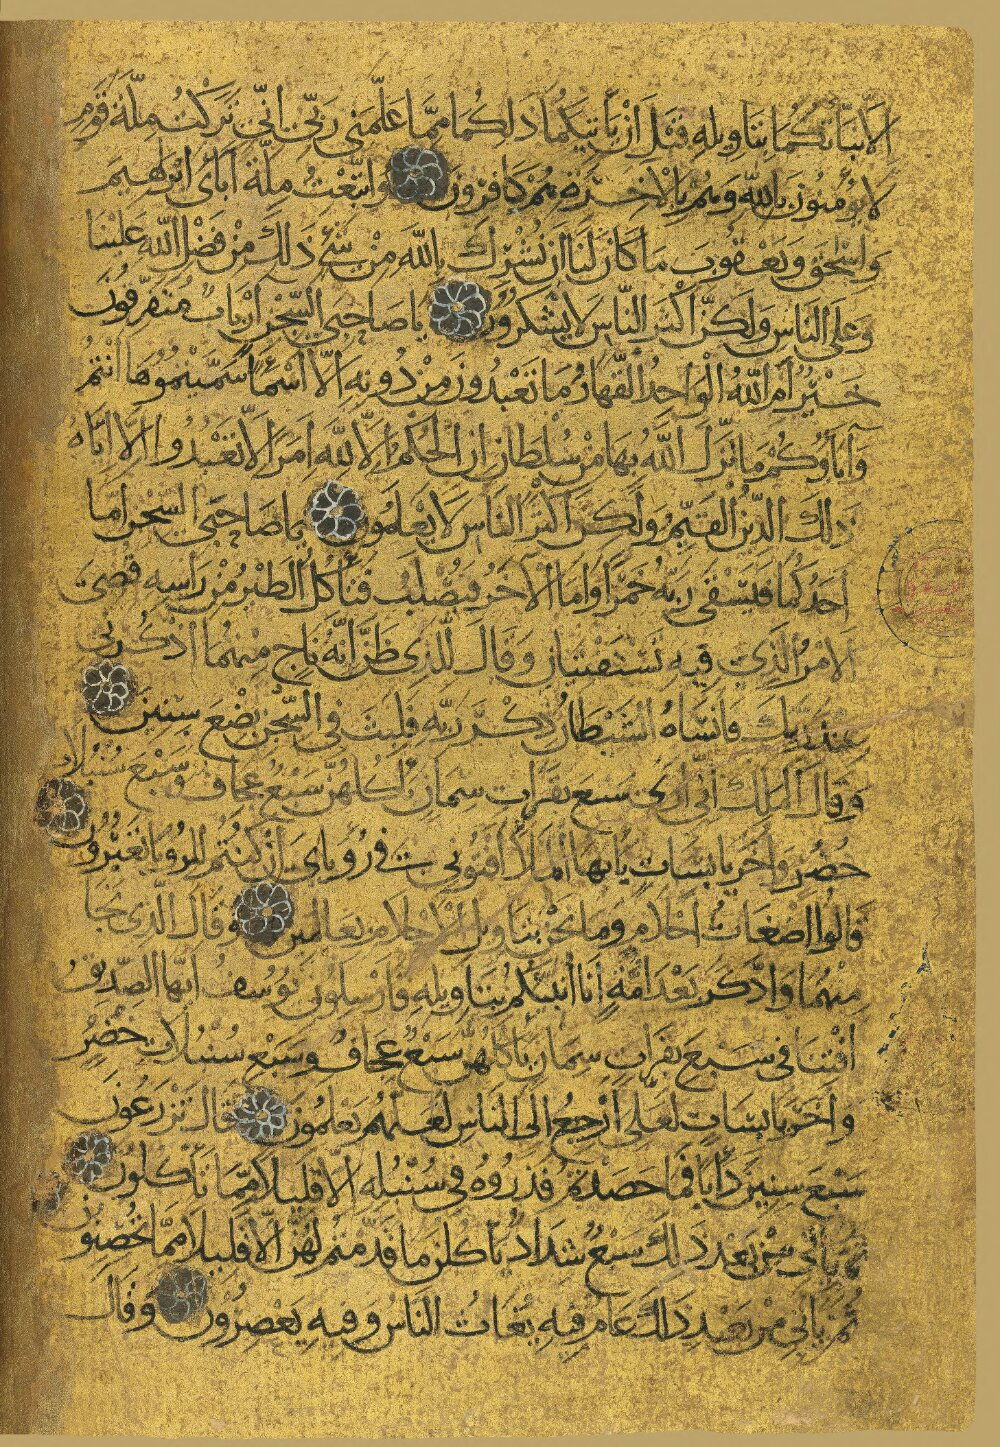 إلا نبأتكما بتأويله قبل أن يأتيكما ذلكما مما علمني ربي إني تركت ملة قوم
لا يؤمنون بالله وهم بالاخرة هم كافرون واتبعت ملة آبائي ابرهيم
واسحق ويعقوب ما كان لنا أن نشرك بالله من شيء ذلك من فضل الله علينا
وعلى الناس ولكن أكثر الناس لا يشكرون يا صاحبي السجن أرباب متفرقون
خير أم الله الواحد القهار ما تعبدون من دونه إلا أسماء سميتموها أنتم
وآباؤكم ما نزل الله بها من سلطان إن الحكم إلا لله أمر ألا تعبدوا إلا إياه
ذلك الدين القيم ولكن أكثر الناس لا يعلمون يا صاحبي السجن أما
أحدكما فيسقي ربه خمرا وأما الآخر فيصلب فتأكل الطير من رأسه قضي
الأمر الذي فيه تستفتيان وقال للذي ظن أنه ناج منهما اذكرني
عند ربك فأنساه الشيطان ذكر ربه فلبث في السجن بضع سنين
وقال الملك إني أرى سبع بقرات سمان يأكلهن سبع عجاف وسبع سنبلات
خضر وأخر يابسات يا أيها الملأ أفتوني في رؤياي إن كنتم للرؤيا تعبرون
قالوا أضغاث أحلام وما نحن بتأويل الأحلام بعالمين وقال الذي نجا
منهما وادكر بعد أمة أنا أنبئكم بتأويله فأرسلون يوسف أيها الصديق
أفتنا في سبع بقرات سمان يأكلهن سبع عجاف وسبع سنبلات خضر
وأخر يابسات لعلي أرجع إلى الناس لعلهم يعلمون قال تزرعون
سبع سنين دأبا فما حصدتم فذروه في سنبله إلا قليلا مما تأكلون
ثم يأتي من بعد ذلك سبع شداد يأكلن ما قدمتم لهن إلا قليلا مما تحصنون
ثم يأتي من بعد ذلك عام فيه يغاث الناس وفيه يعصرون وقال